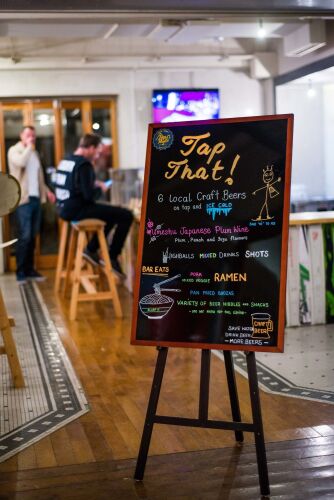 Tap
That!
6 Local Craft Beers
on tap and ICE COLD
Umeshu Japanese Plum Wine
Plum, Peach and Yuzu flavours
Highballs Mixed Drinks Shots
BAR EATS
PORK
MIXED VEGGIE
RAMEN
PAN FRIED GYOZAS
VARIETY OF BEER NIBBLES AND SNACKS
SAVE WATER
DRINK BEERS
MORE BEERS
CRAFT
BEER